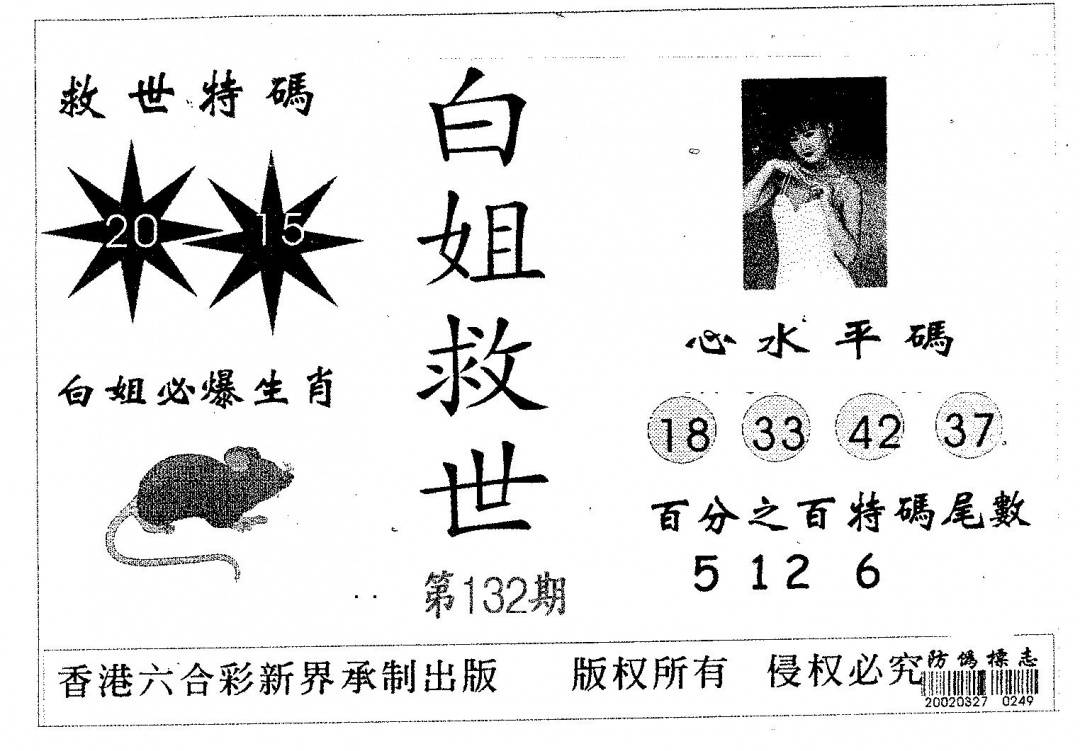 救世特碼
20 15
白姐必爆生肖
白姐救世
第132期
心水平碼
18 33 42 37
百分之百特碼尾數
5 12 6
香港六合彩新界承制出版 版权所有 侵权必究
防偽標志
20020327 0249